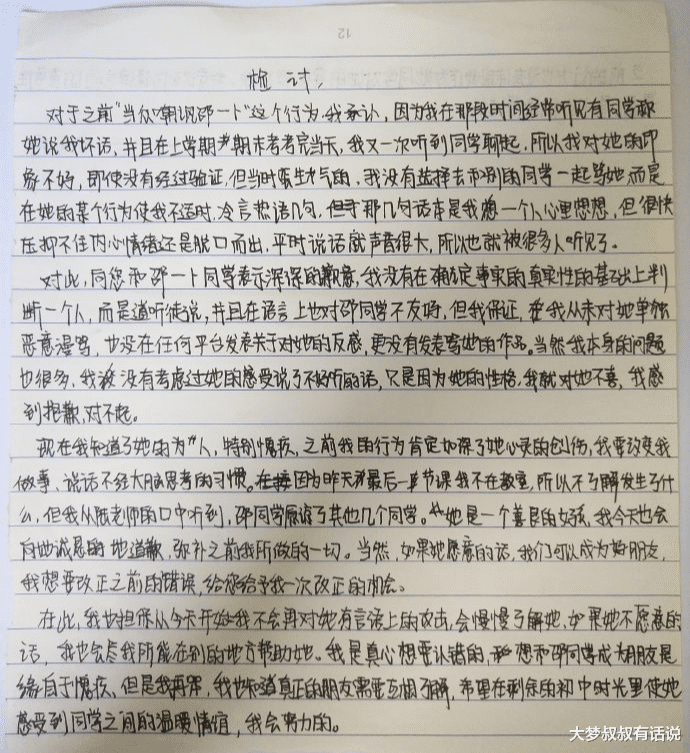 12
检讨
对于之前"当众嘲讽邵一卜"这个行为,我承认,因为我在那段时间经常听见有同学称
她说我坏话,并且在上学期期末考考完当天,我又一次听到同学聊起,所以我对她的印
象不好,即使没有经过验证,但当时蛮生气的,我没有选择去和别的同学一起骂她,而是
在她的某个行为使我不适时,冷言热语几句,但于那几句话本是我想一个人心里想想,但很快
压抑不住内心情绪还是脱口而出,平时说话就声音很大,所以也就被很多人听见了。
对此,向您和邵一卜同学表示深深的歉意,我没有在确定事实的真实性的基础上判
断一个人,而是道听徒说,并且在语言上也对邵同学不友好,但我保证,我从未对她单独
恶意谩骂,也没在任何平台发表关于对她的反感,更没有发表骂她的作品。当然我本身的问题
也很多,我没有考虑过她的感受说了不好听的话,只是因为她的性格,我就对她不喜,我感
到抱歉,对不起。
现在我知道了她的为人,特别愧疚,之前我的行为肯定加深了她心灵的创伤,我要改变我
做事、说话不经大脑思考的习惯。因为昨天最后一节课我不在教室,所以不了解发生了什
么,但我从殷老师的口中听到,邵同学原谅了其他几个同学。她是一个善良的女孩,我今天也会
向她诚恳的地道歉,弥补之前我所做的一切。当然,如果她愿意的话,我们可以成为好朋友,
我想要改正之前的错误,给您给予我一次改正的机会。
在此,我也担保从今天开始我不会再对她有言语上的攻击,会慢慢了解她,如果她不愿意的
话,我也会尽我所能在别的地方帮助她。我是真心想要认错的,想和邵同学成为朋友是
缘自于愧疚,但是我再深,我也知道真正的朋友需要互相了解,希望在剩余的初中时光里使她
感受到同学之间的温暖情谊,我会努力的。
大梦叔叔有话说